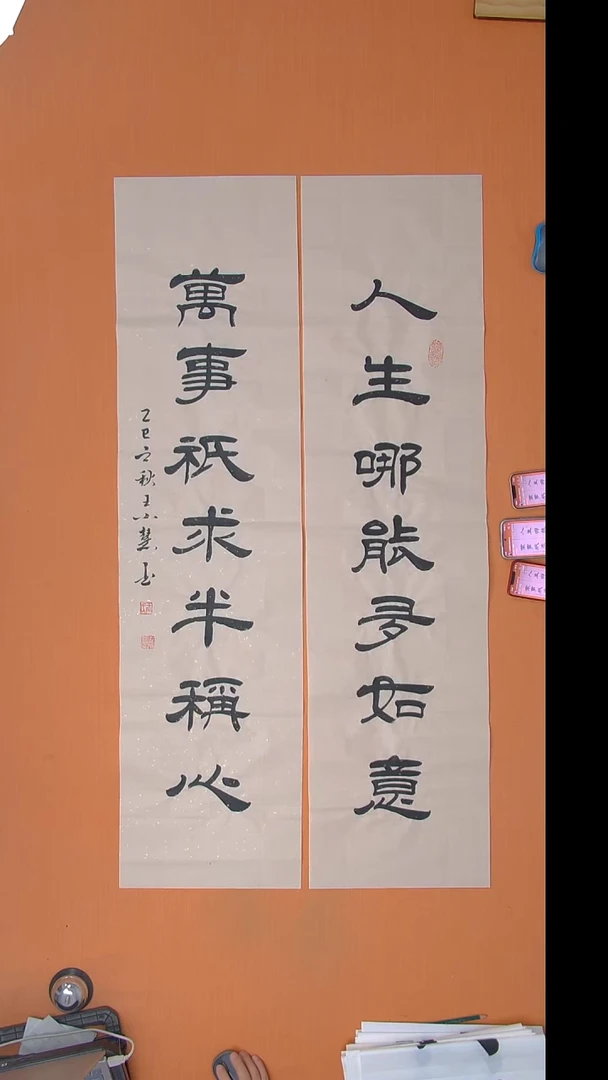 人生哪能多如意
萬事祇求半稱心
乙巳立秋王小慧书